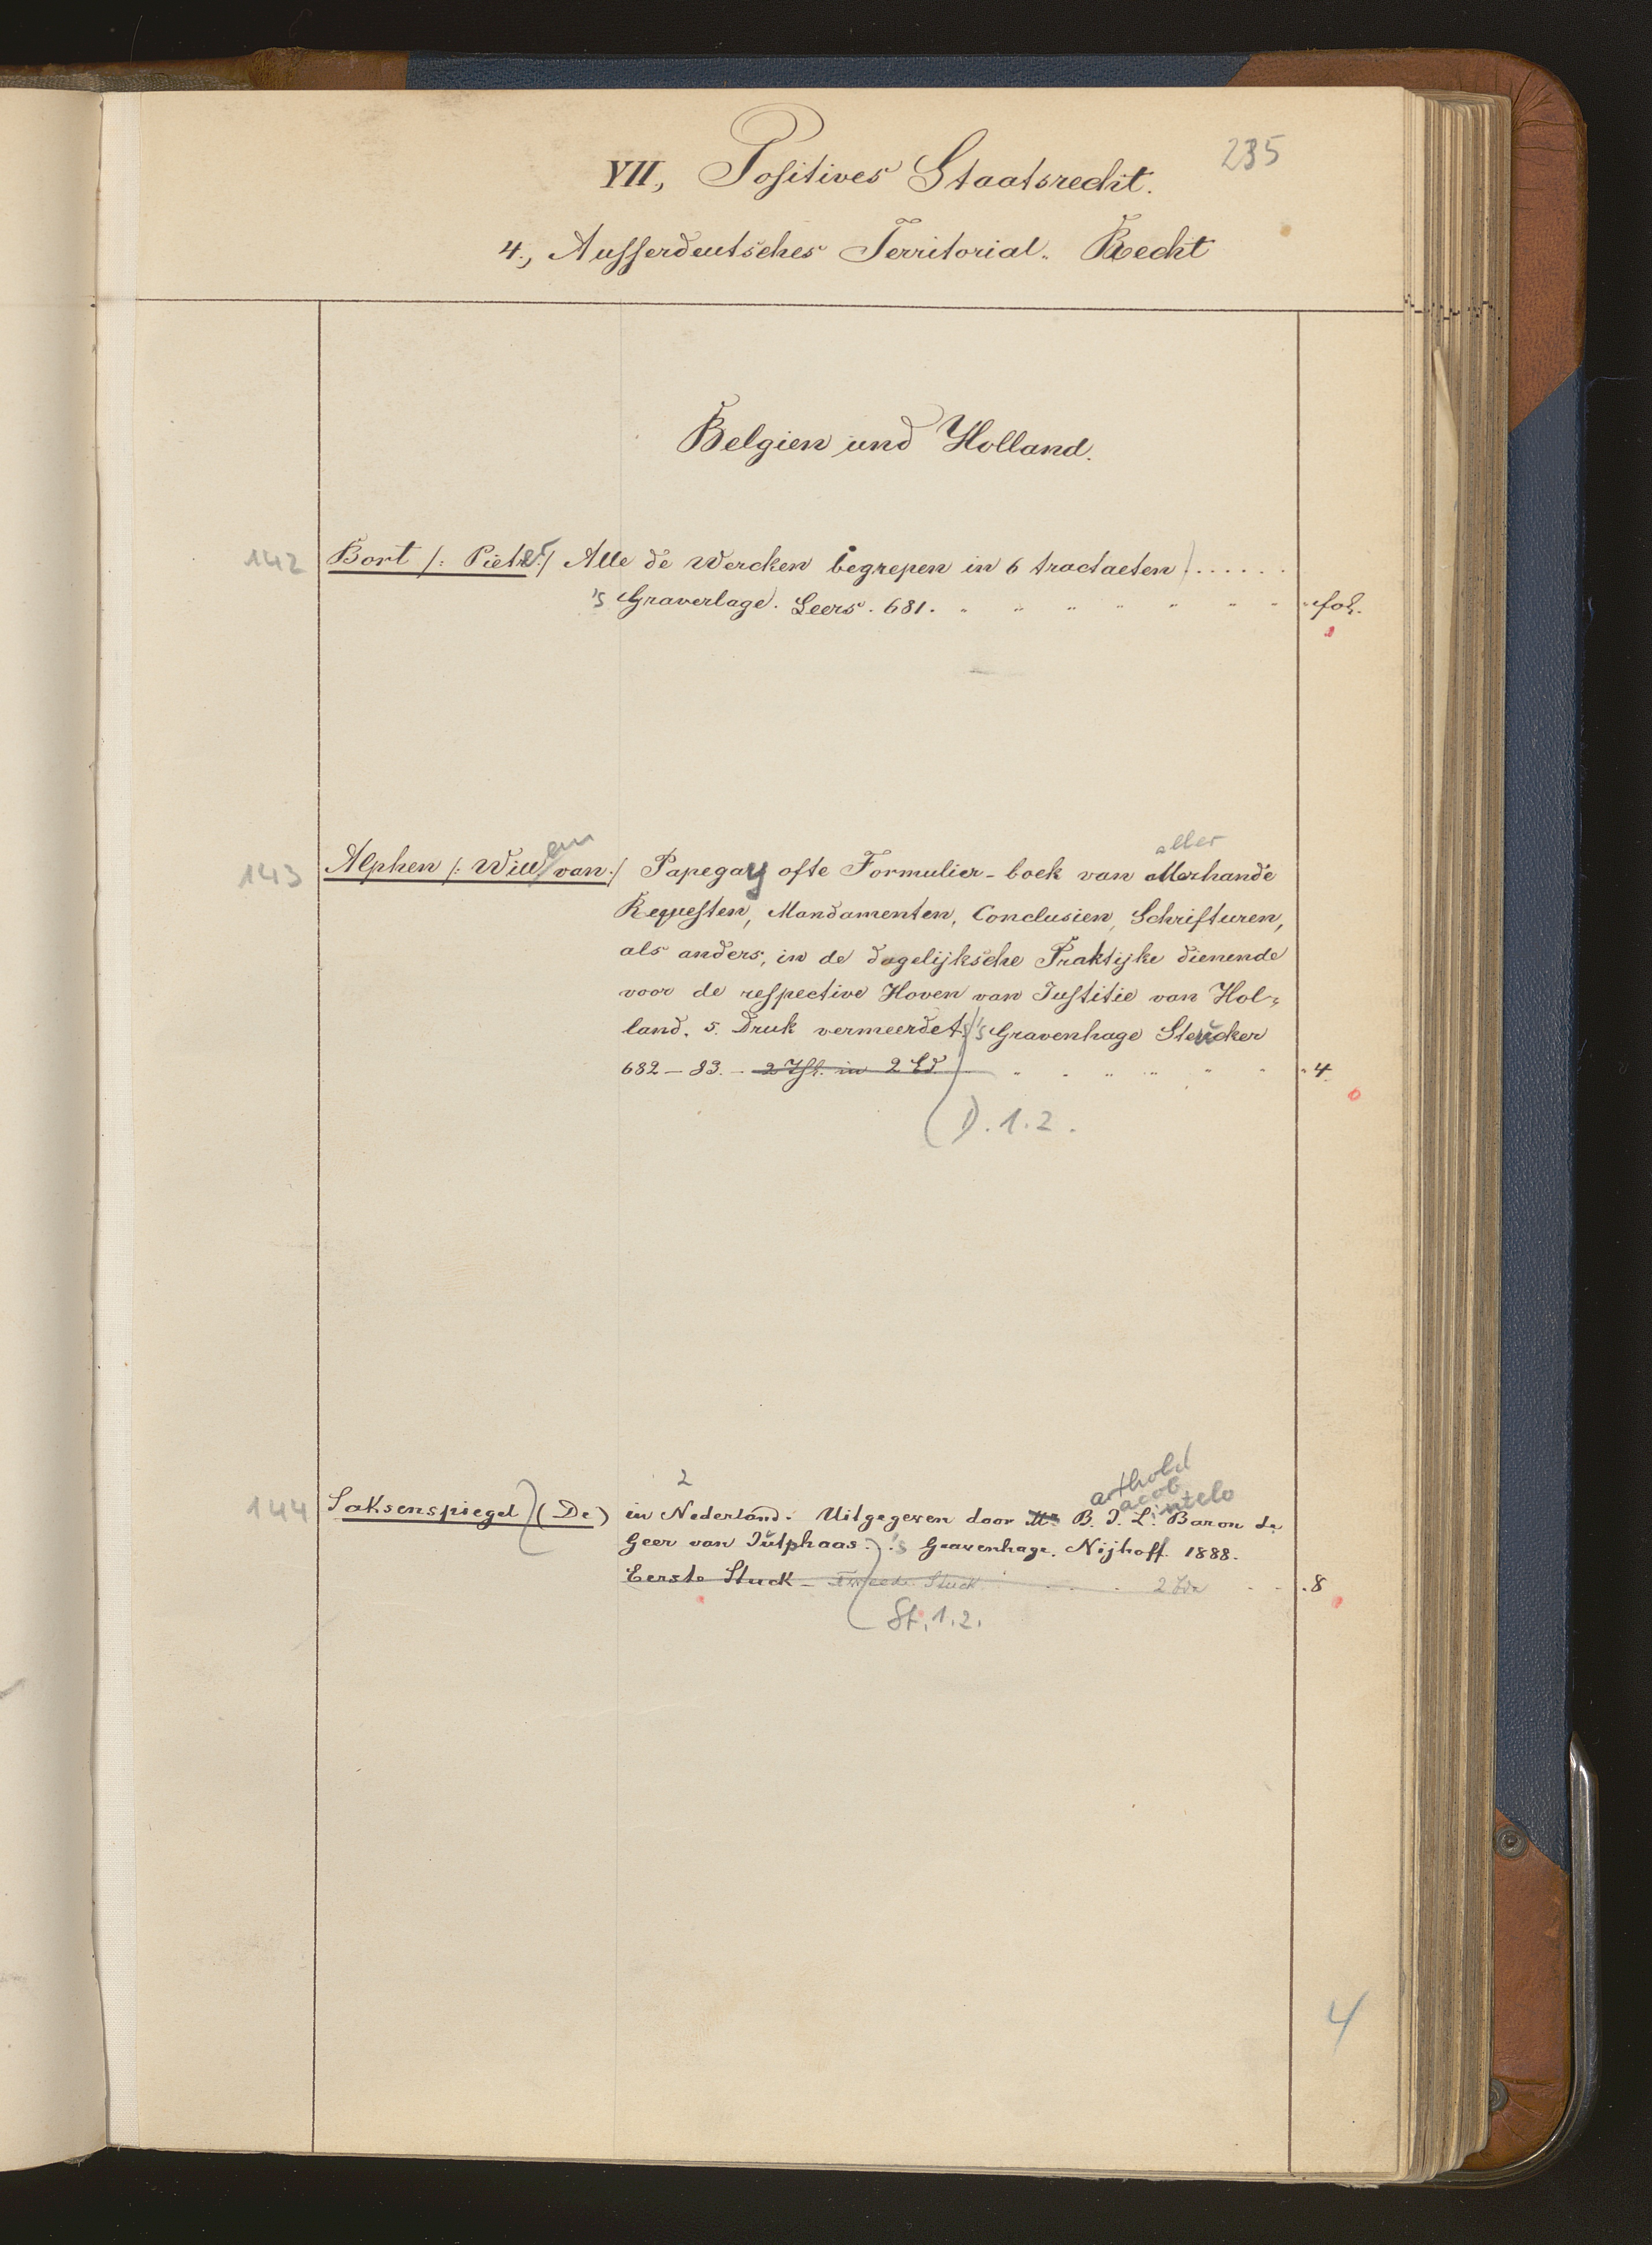 235
VII, Positives Staatsrecht.
4., Ausserdeutsches Territorial. Recht
Belgien und Holland.
142 Bort /: Pieter :/ Alle de Wercken begrepen in 6 tractaeten) . . . . . .
's Gravenhage. Leers. 681. fol.
em aller
143 Alphen /: Will van :/ Papegay ofte Formulier-boek van allerhande
Requesten, Mandamenten, Conclusien, Schrifturen,
als anders, in de dagelijksche Praktijke dienende
voor de respective Hoven van Justitie van Hol-
land. 5. Druk vermeerdet. 's Gravenhage Steucker
682-83. - 2 Thl. in 2 Bd 4
(D. 1. 2.
2 arthold acob intelo
144 Saksenspiegel (De) in Nederland. Uitgegeven door Mr B. J. L. Baron de
Geer van Jutphaas. 's Gravenhage. Nijhoff. 1888.
Eerste Stuck - Tweede Stuck 2 Bde 8
St. 1. 2.
4